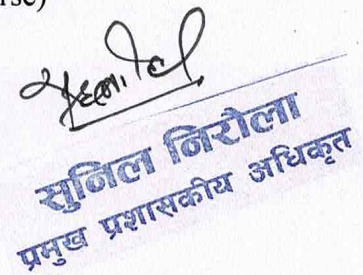 rse)
सुनिल निरौला
प्रमुख प्रशासकीय अधिकृत